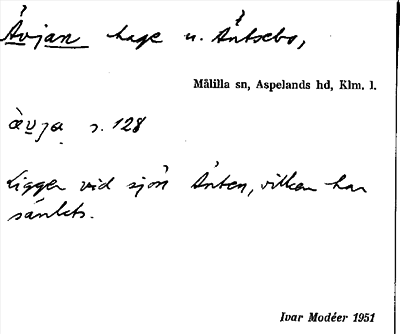 Åvjan hage u. Åntsebo,
Målilla sn, Aspelands hd, Klm. l.
s. 128
Ligger vid sjön Ånten, vilken har
sänkts.
Ivar Modéer 1951